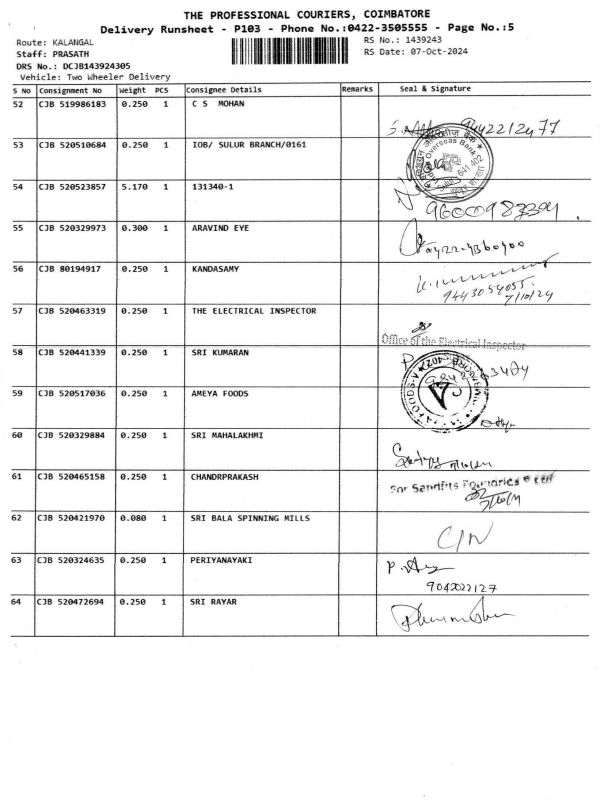 THE PROFESSIONAL COURIERS, COIMBATORE
Delivery Runsheet - P103 - Phone No.:0422-3505555 - Page No.:5
Route: KALANGAL
RS No.: 1439243
Staff: PRASATH
RS Date: 07-Oct-2024
DRS No.: DCJB143924305
Vehicle: Two Wheeler Delivery
S No Consignment No Weight PCS Consignee Details Remarks Seal & Signature
52 CJB 519986183 0.250 1 C S MOHAN
53 CJB 520510684 0.250 1 IOB/ SULUR BRANCH/0161
Overseas Bank
641 402
54 CJB 520523857 5.170 1 131340-1
55 CJB 520329973 0.300 1 ARAVIND EYE
56 CJB 80194917 0.250 1 KANDASAMY
9443054055
7/10/24
57 CJB 520463319 0.250 1 THE ELECTRICAL INSPECTOR
Office of the Electrical Inspector
58 CJB 520441339 0.250 1 SRI KUMARAN
59 CJB 520517036 0.250 1 AMEYA FOODS
60 CJB 520329884 0.250 1 SRI MAHALAKHMI
61 CJB 520465158 0.250 1 CHANDRPRAKASH
62 CJB 520421970 0.080 1 SRI BALA SPINNING MILLS
C/N
63 CJB 520324635 0.250 1 PERIYANAYAKI
64 CJB 520472694 0.250 1 SRI RAYAR